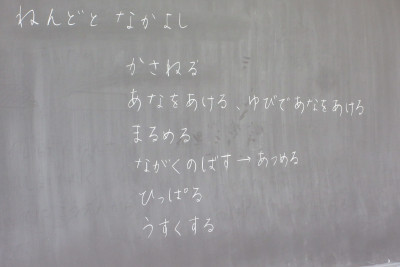 ねんどと なかよし
かさねる
あなをあける、ゆびであなをあける
まるめる
ながくのばす→あつめる
ひっぱる
うすくする